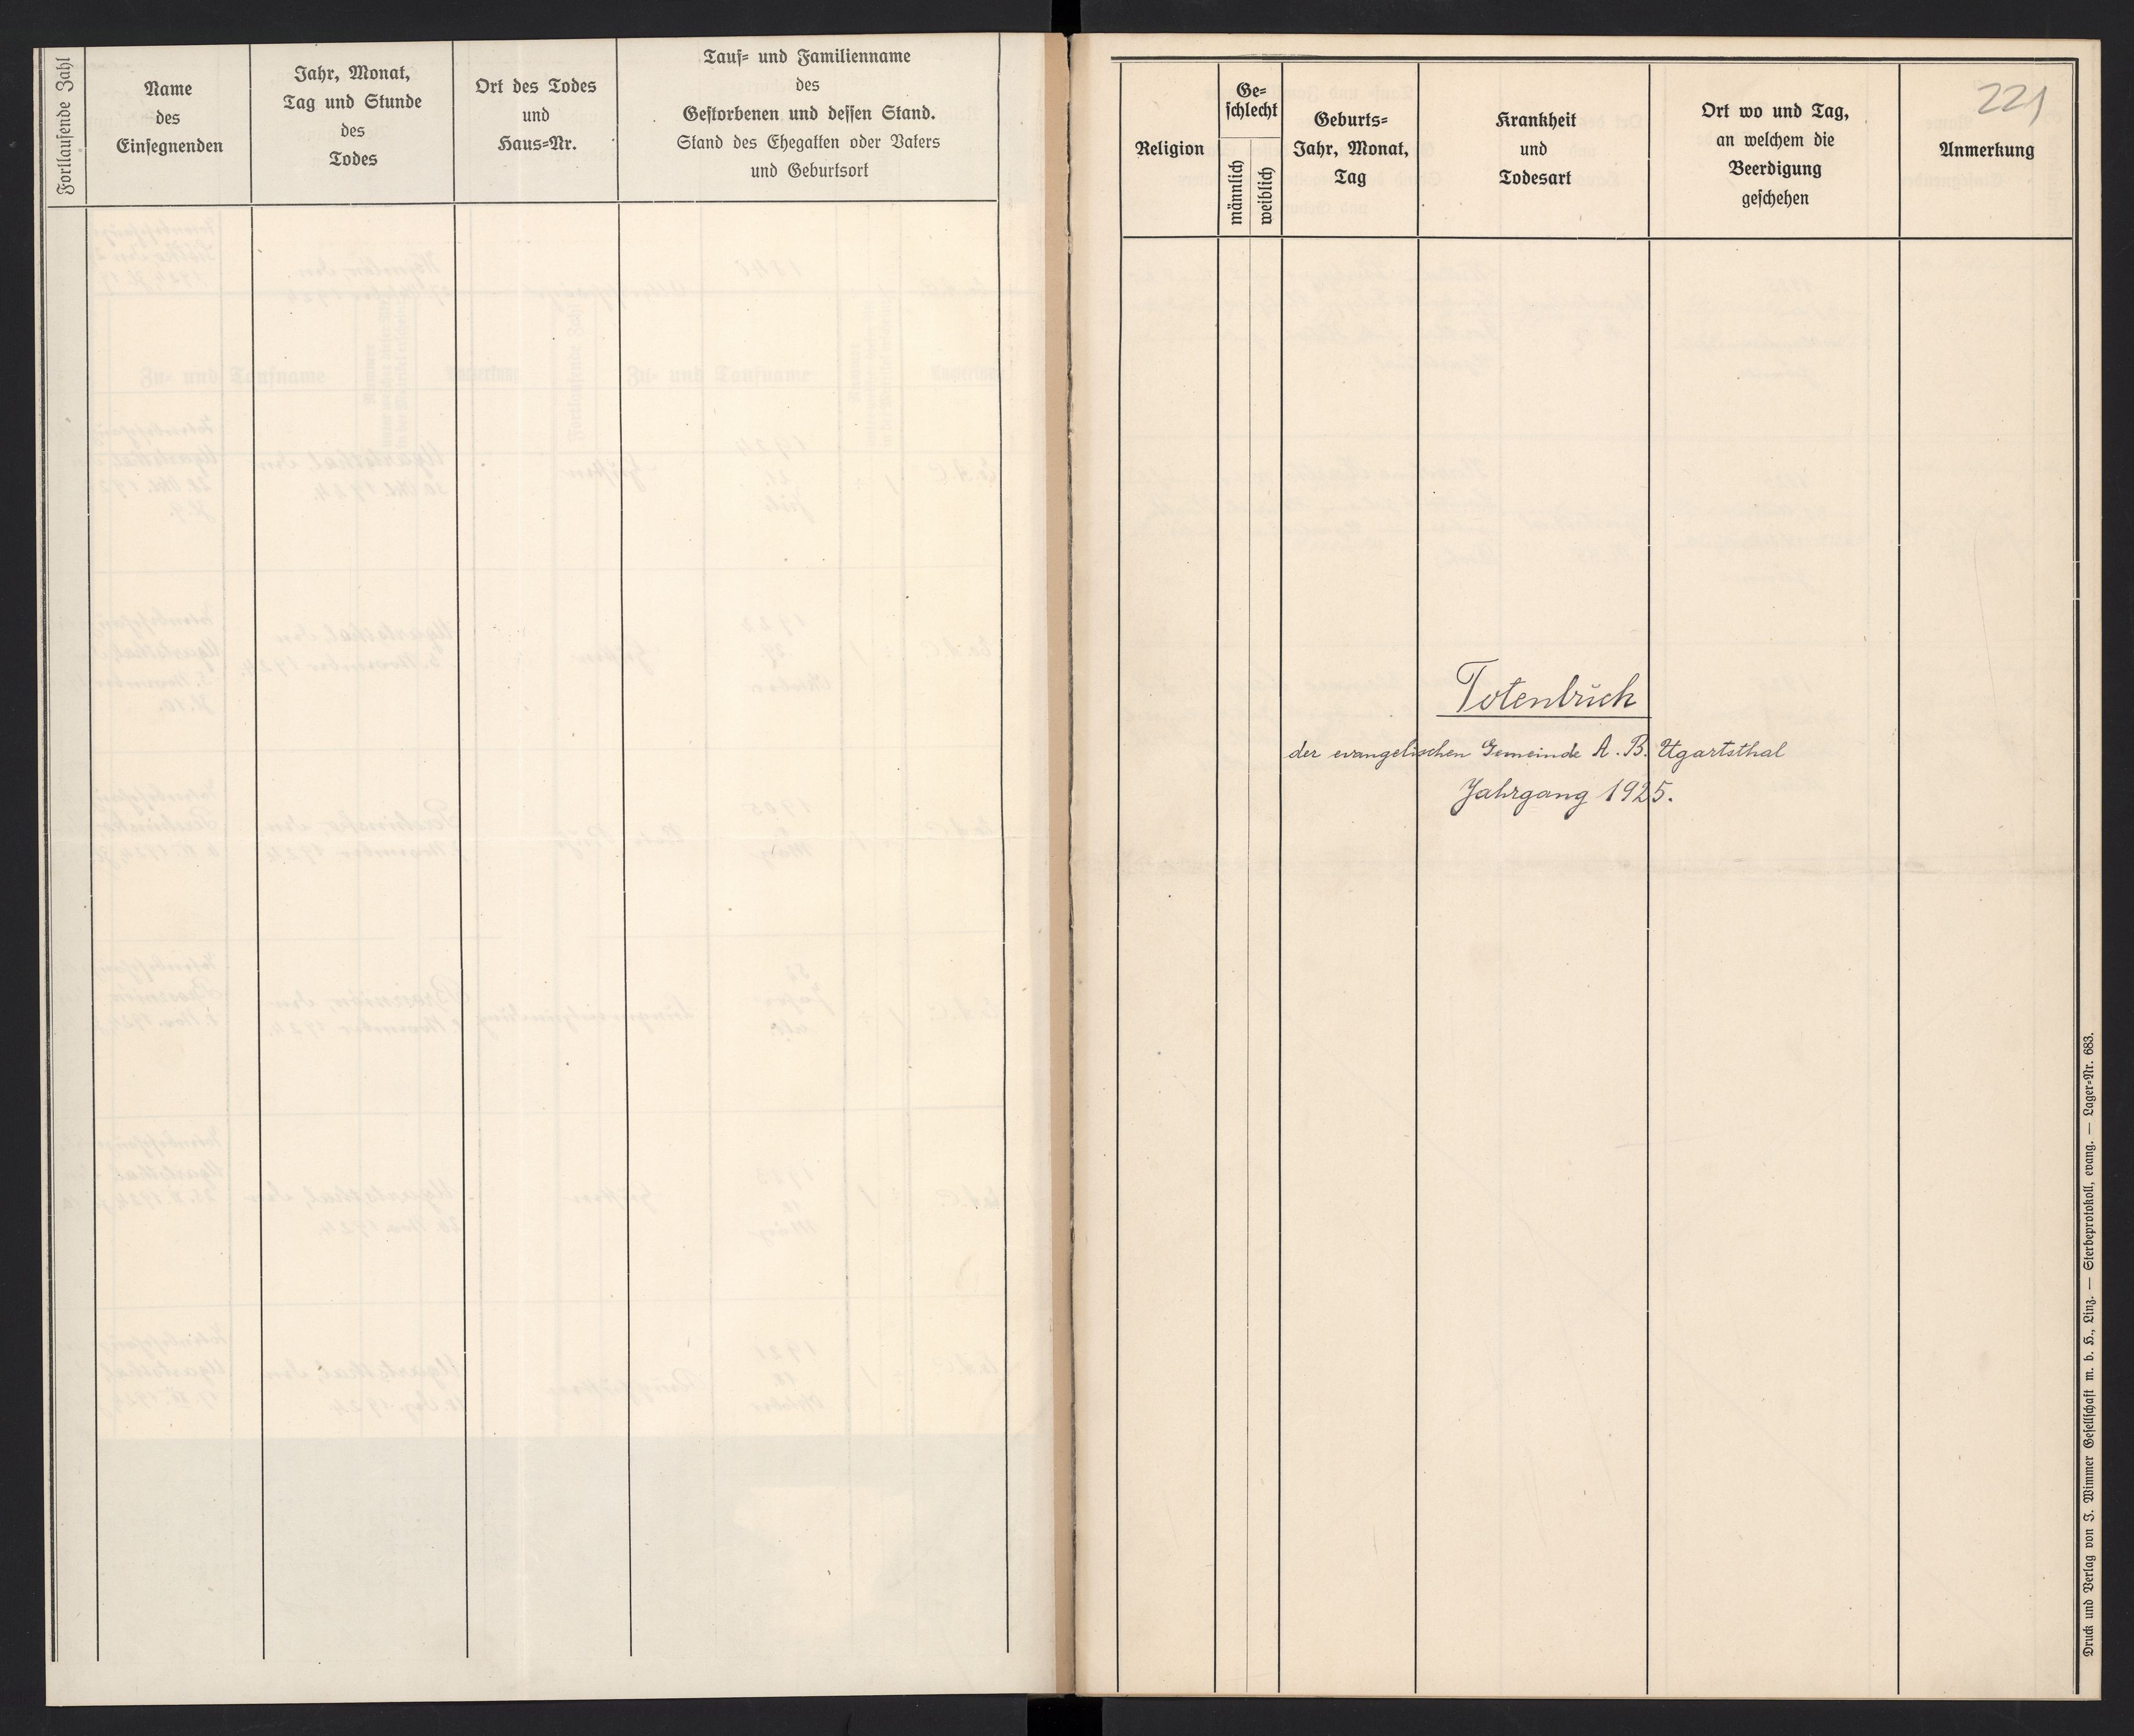 Fortlaufende Zahl
Name
des
Einsegnenden
Jahr, Monat,
Tag und Stunde
des
Todes
Ort des Todes
und
Haus-Nr.
Tauf- und Familienname
des
Gestorbenen und dessen Stand.
Stand des Ehegatten oder Vaters
und Geburtsort
Religion
Ge-
schlecht
männlich
weiblich
Geburts-
Jahr, Monat,
Tag
Krankheit
und
Todesart
Ort wo und Tag,
an welchem die
Beerdigung
geschehen
221
Anmerkung
Totenbuch
der evangelischen Gemeinde A. B. Ugartsthal
Jahrgang 1925.
Druck und Verlag von J. Wimmer Gesellschaft m. b. H., Linz. — Sterbeprotokoll, evang. — Lager-Nr. 683.